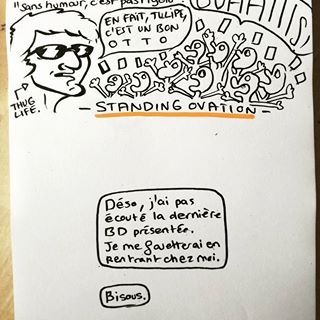 "Sans humour, c'est pas rigolo".
OUAAIIIS!
EN FAIT, TULIPE,
C'EST UN BON
OTTO
THUG
LIFE.
- STANDING OVATION -
Déso, j'ai pas
écouté la dernière
BD présentée.
Je me fouetterai en
rentrant chez moi.
Bisous.